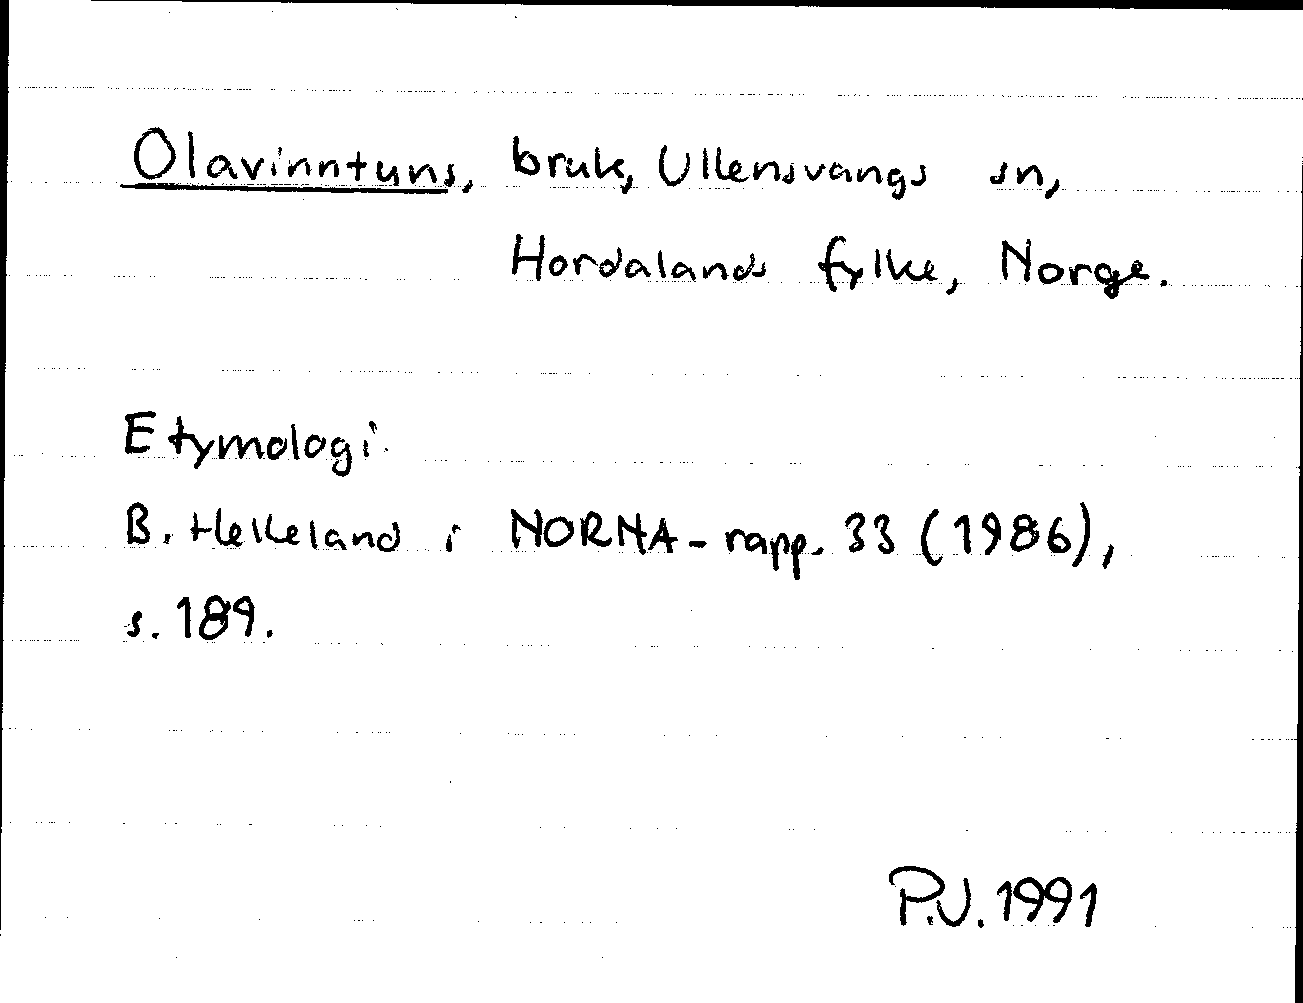 Olavinntuns, bruk, Ullensvangs sn,
Hordalands fylke, Norge.
Etymologi.
B. Helleland i NORNA-rapp. 33 (1986),
s. 189.
P.V. 1991